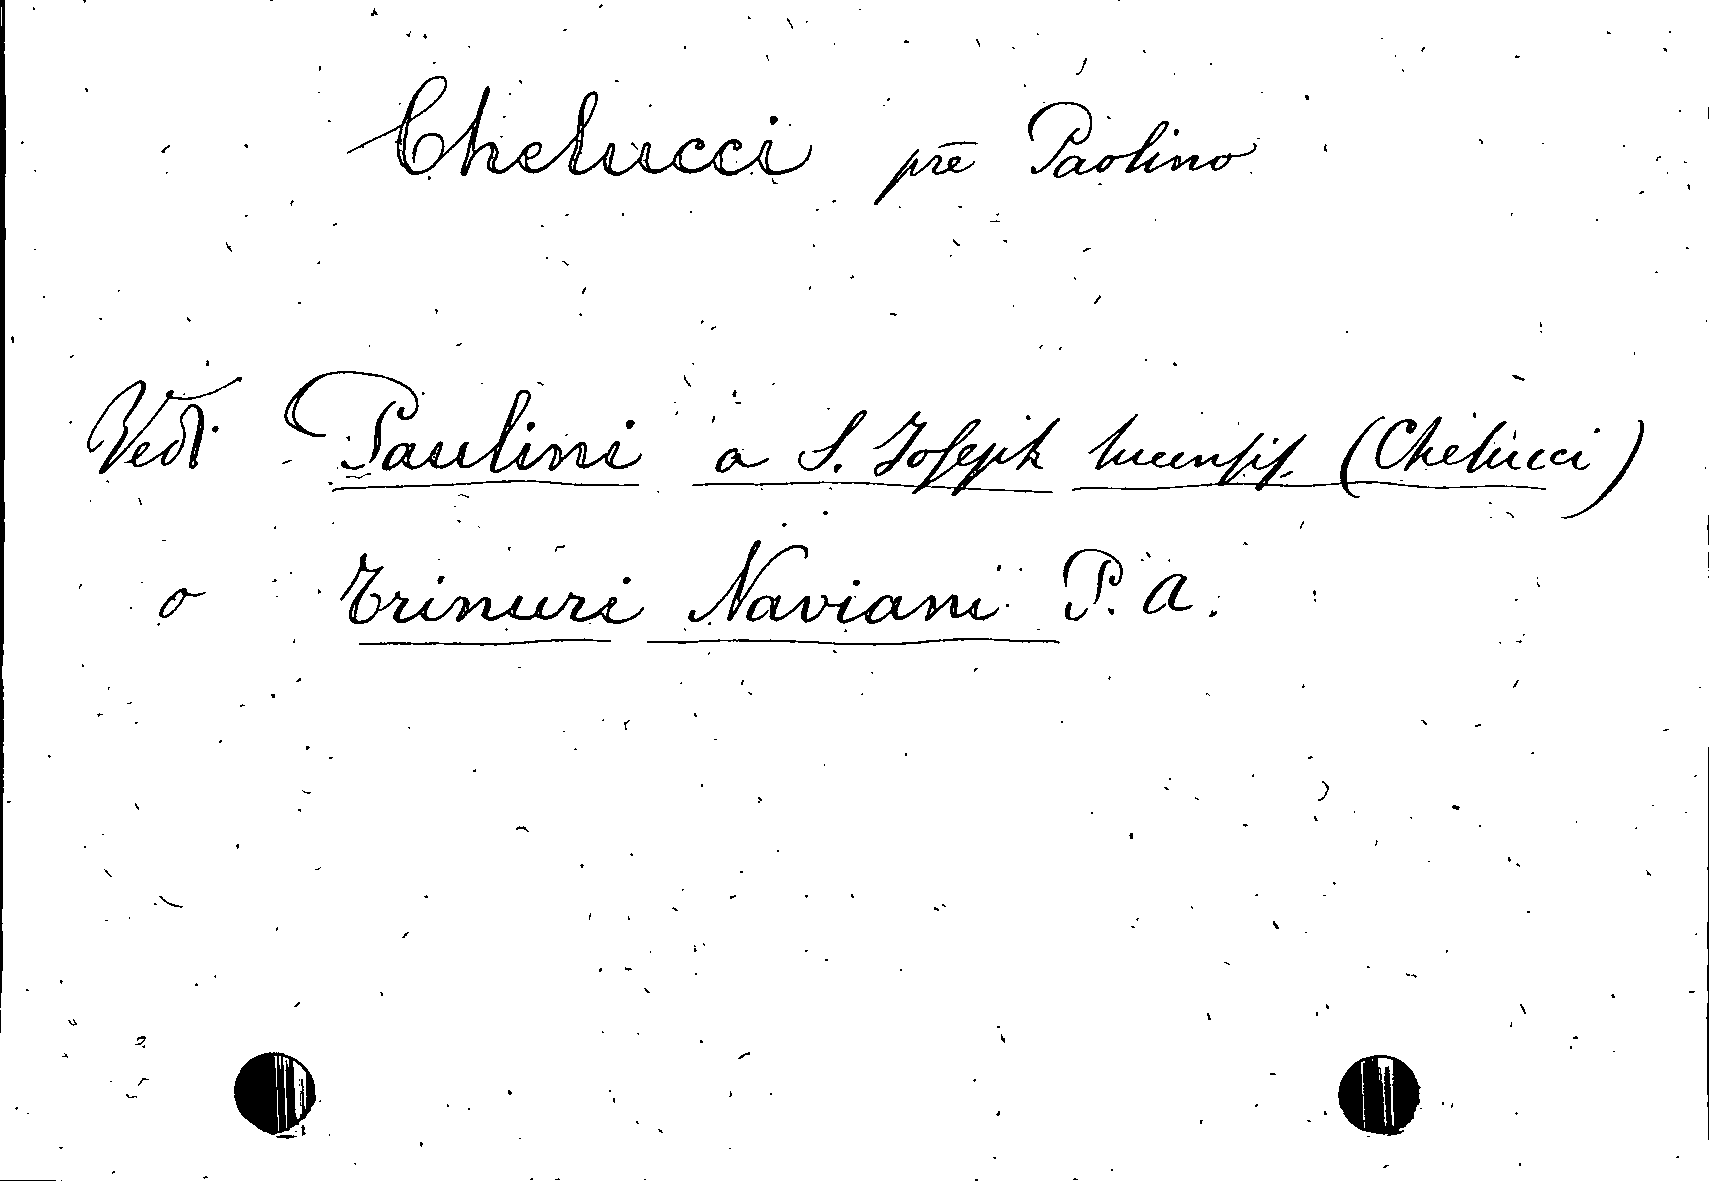 Chelucci prē Paolino
Vedi Paulini a S. Joseph Lucensis. (Chelucci)
o Erinuri Naviani P. A.